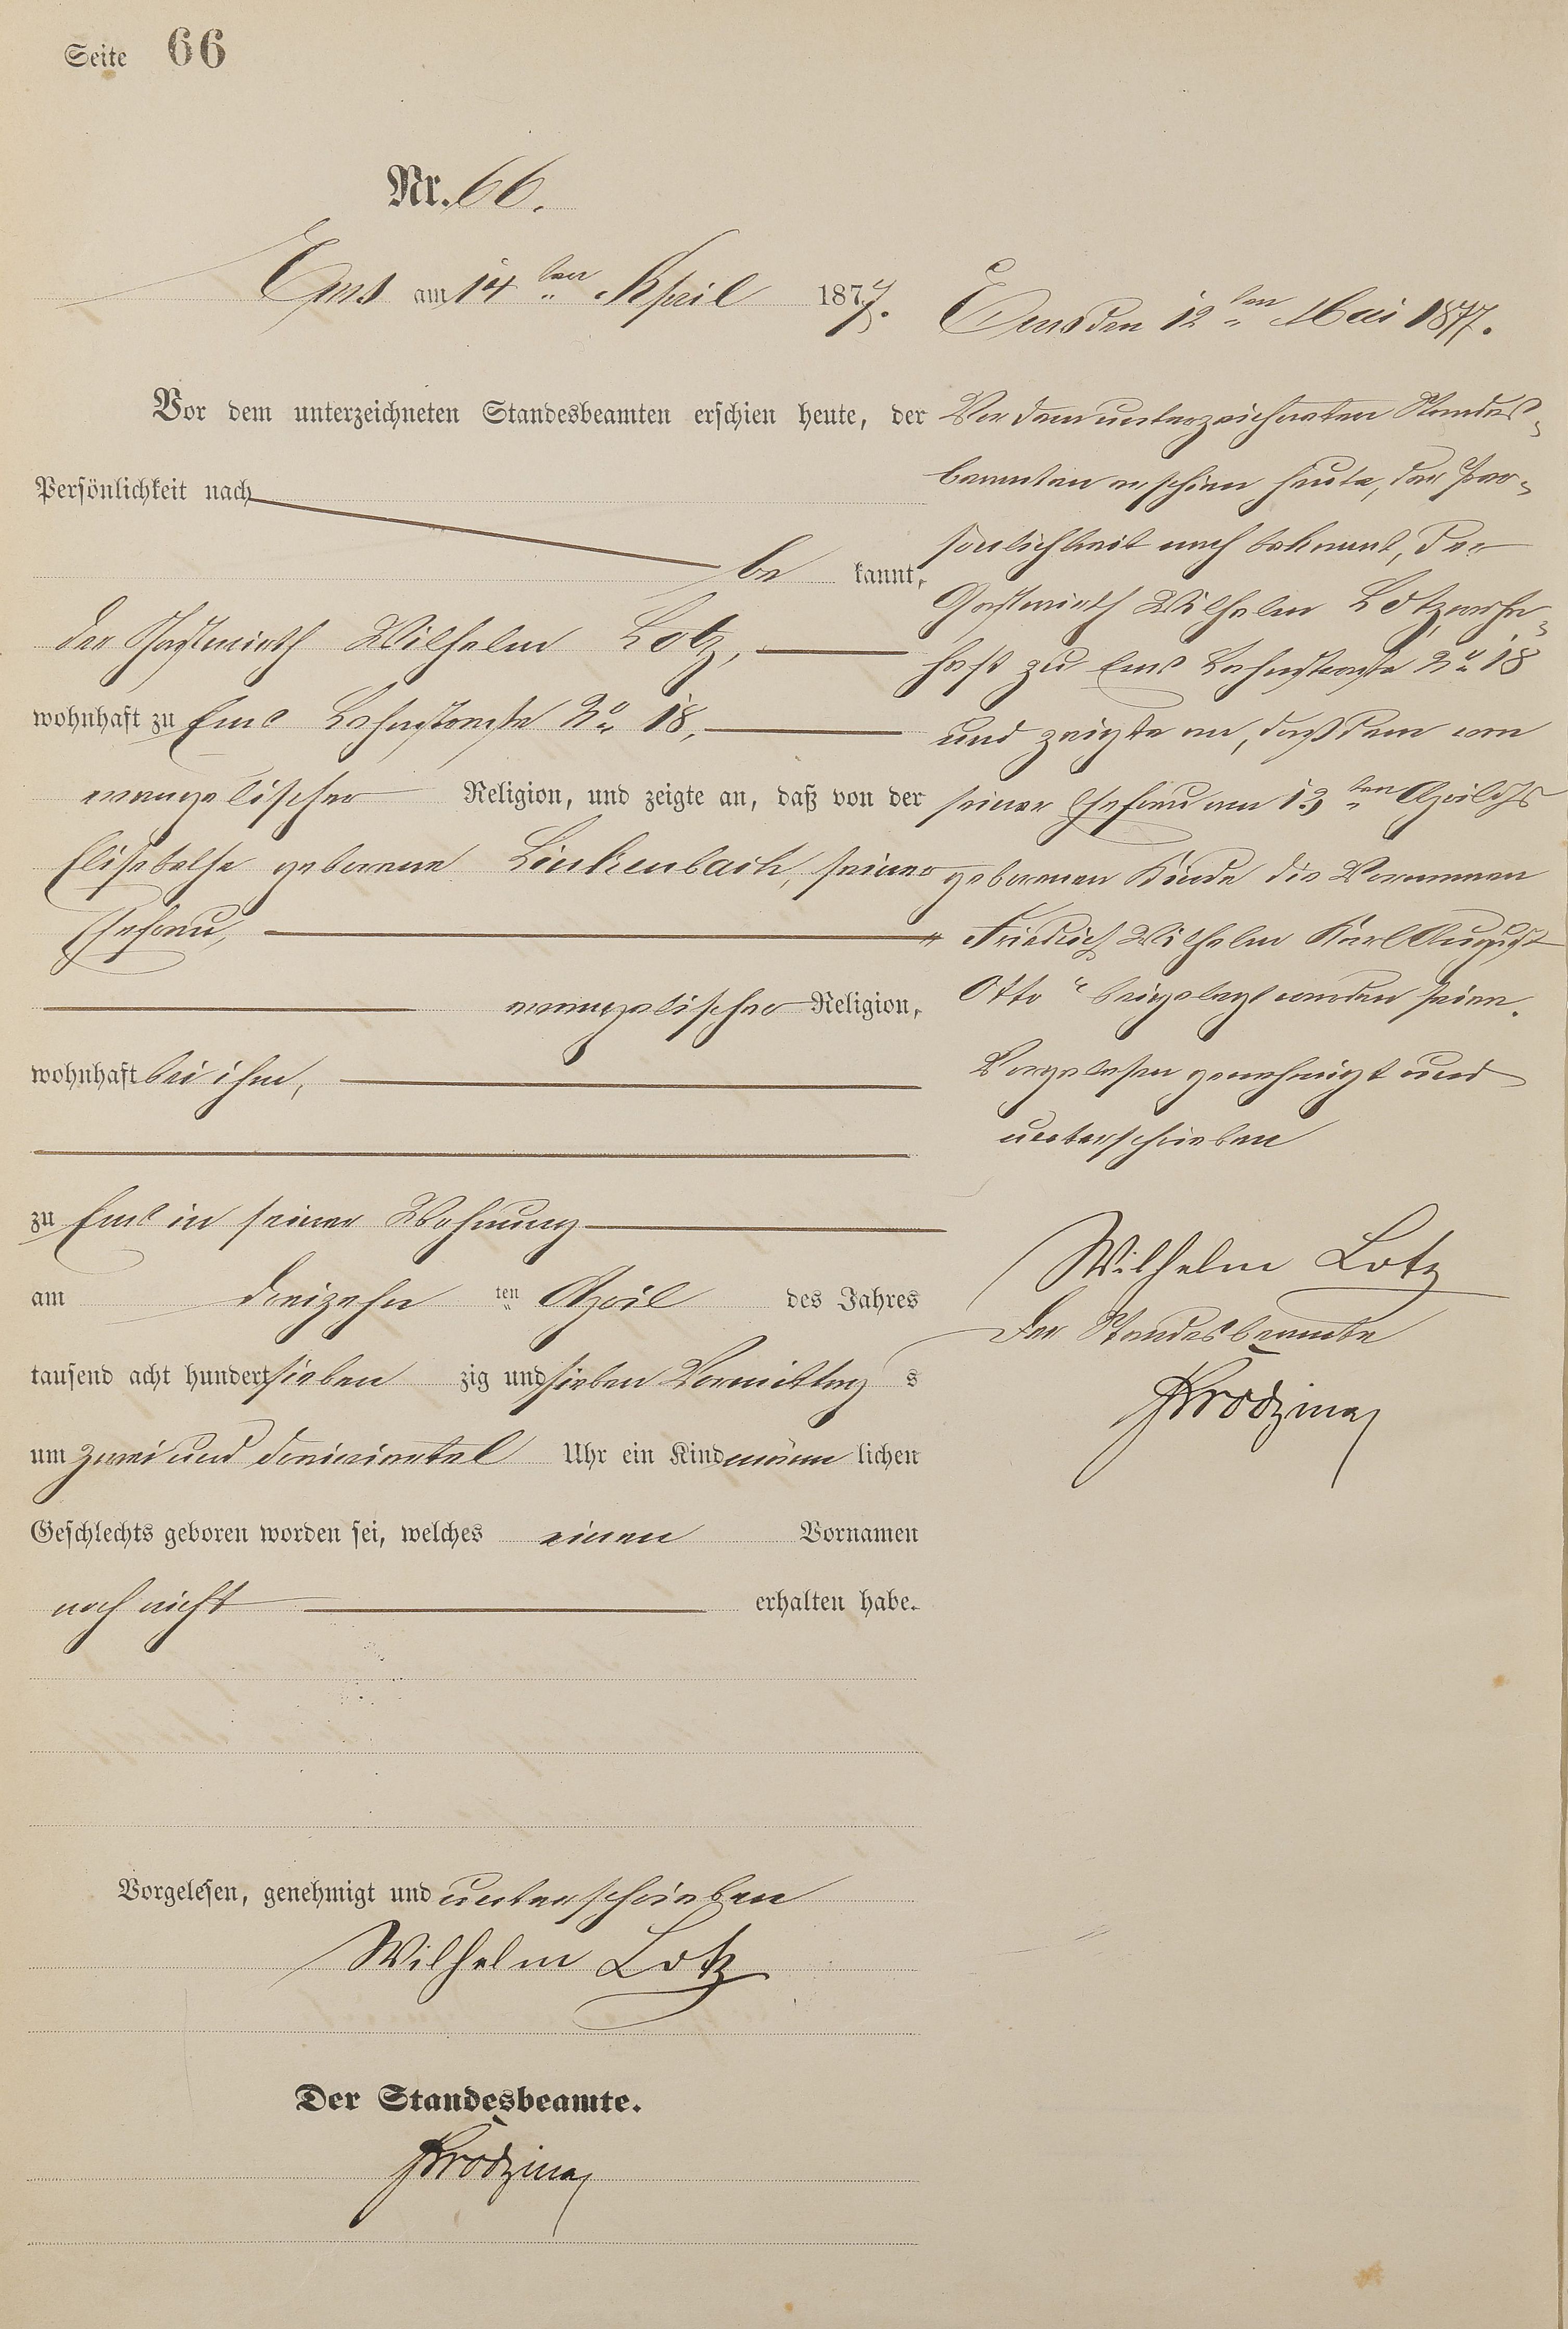 Seite 66
Nr. 66.
Ems am 14ten April 1877.
Vor dem unterzeichneten Standesbeamten erschien heute, der
Persönlichkeit nach
be kannt,
der Gastwirth Wilhelm Lotz,
wohnhaft zu Ems Lahnstraße No 18,
evangelischer Religion, und zeigte an, daß von der
Elisabethe geborene Linkenbach, seiner
Ehefrau,
evangelischer Religion,
wohnhaft bei ihm,
zu Ems in seiner Wohnung
am dreizehn ten April des Jahres
tausend acht hundert sieben zig und sieben Vormittag s
um zwei und dreiviertel Uhr ein Kind männ lichen
Geschlechts geboren worden sei, welches einen Vornamen
noch nicht erhalten habe.
Vorgelesen, genehmigt und unterschrieben
Wilhelm Lotz
Der Standesbeamte.
Ems den 12ten Mai 1877.
Vor dem unterzeichneten Standes-
beamten erschien heute, der Per-
sönlichkeit nach bekannt, der
Gastwirth Wilhelm Lotz, wohn-
haft zu Ems Lahnstraße No 18
und zeigte an, daß dem von
seiner Ehefrau am 13ten April
geborenen Kinde die Vornamen
"Friedrich Wilhelm Karl August
Otto" beigelegt worden seien.
Vorgelesen genehmigt und
unterschrieben
Wilhelm Lotz
Der Standesbeamte